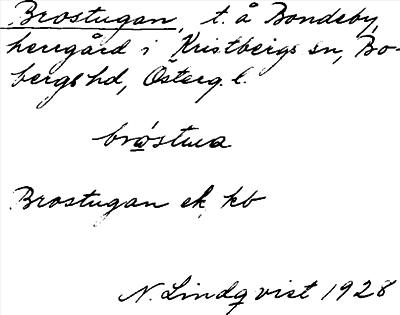 Brostugan, t. å Bondeby,
herrgård i Kristbergs sn, Bo-
bergs hd, Österg. l.
bro̱´stua
Brostugan ek kb
N. Lindqvist 1928